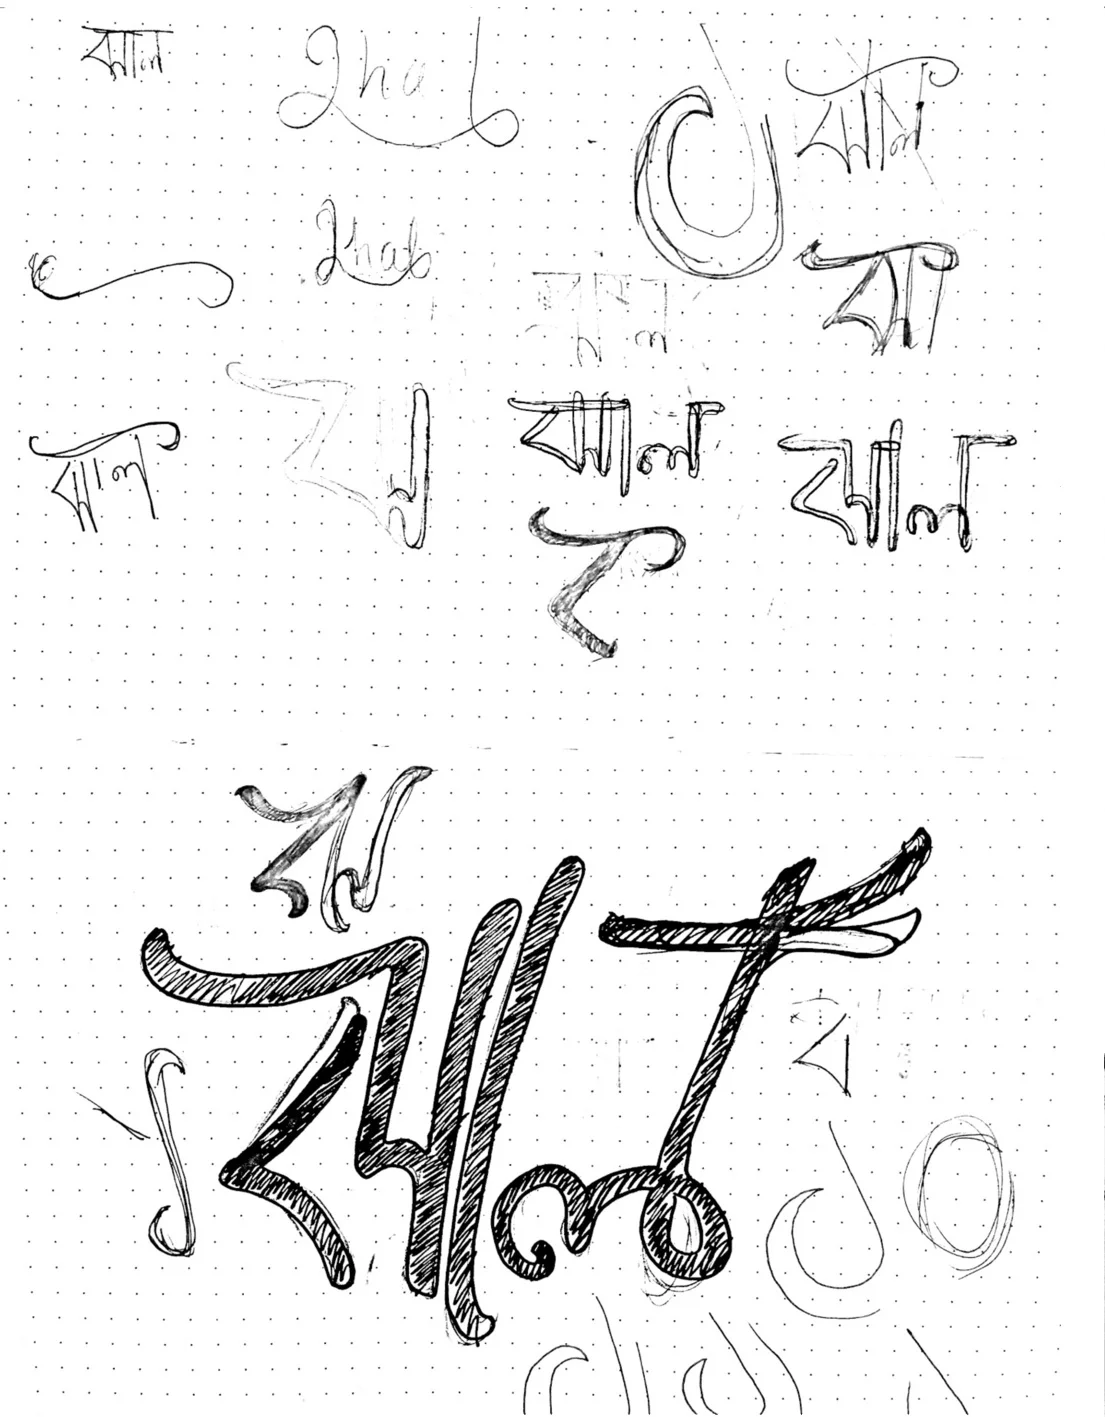 ঝাল
Jhal
ঝাল
Jhal
ঝা
ঝাল
ঝ
ঝাল
ঝাল
ঝ
ঝাল